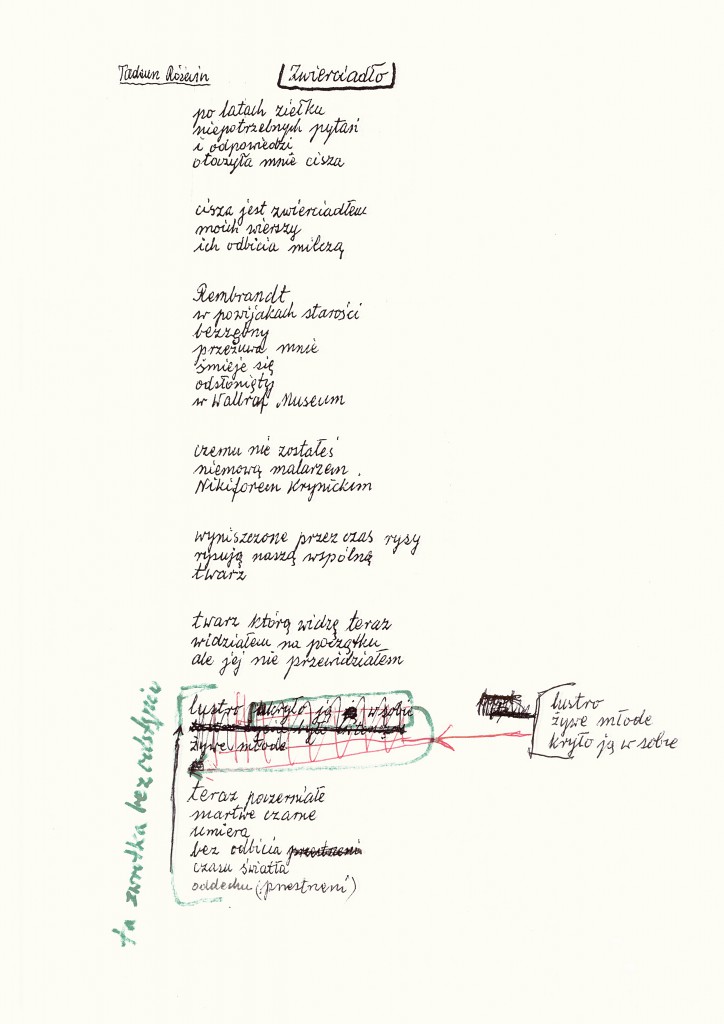 Tadeusz Różewicz
Zwierciadło
po latach zgiełku
niepotrzebnych pytań
i odpowiedzi
otoczyła mnie cisza
cisza jest zwierciadłem
moich wierszy
ich odbicia milczą
Rembrandt
w powijakach starości
bezzębny
przeżuwa mnie
śmieje się
odsłonięty
w Wallraf Museum
czemu nie zostałeś
niemową malarzem
Nikiforem Krynickim
wyniszczone przez czas rysy
rysują naszą wspólną
twarz
twarz którą widzę teraz
widziałem na początku
ale jej nie przewidziałem
lustro ukryło ją w sobie
żywe młode
lustro
żywe młode
kryło ją w sobie
teraz poczerniałe
martwe czarne
umiera
bez odbicia przestrzeni
czasu światła
oddechu (przestrzeni)
ta zwrotka bez odstępu